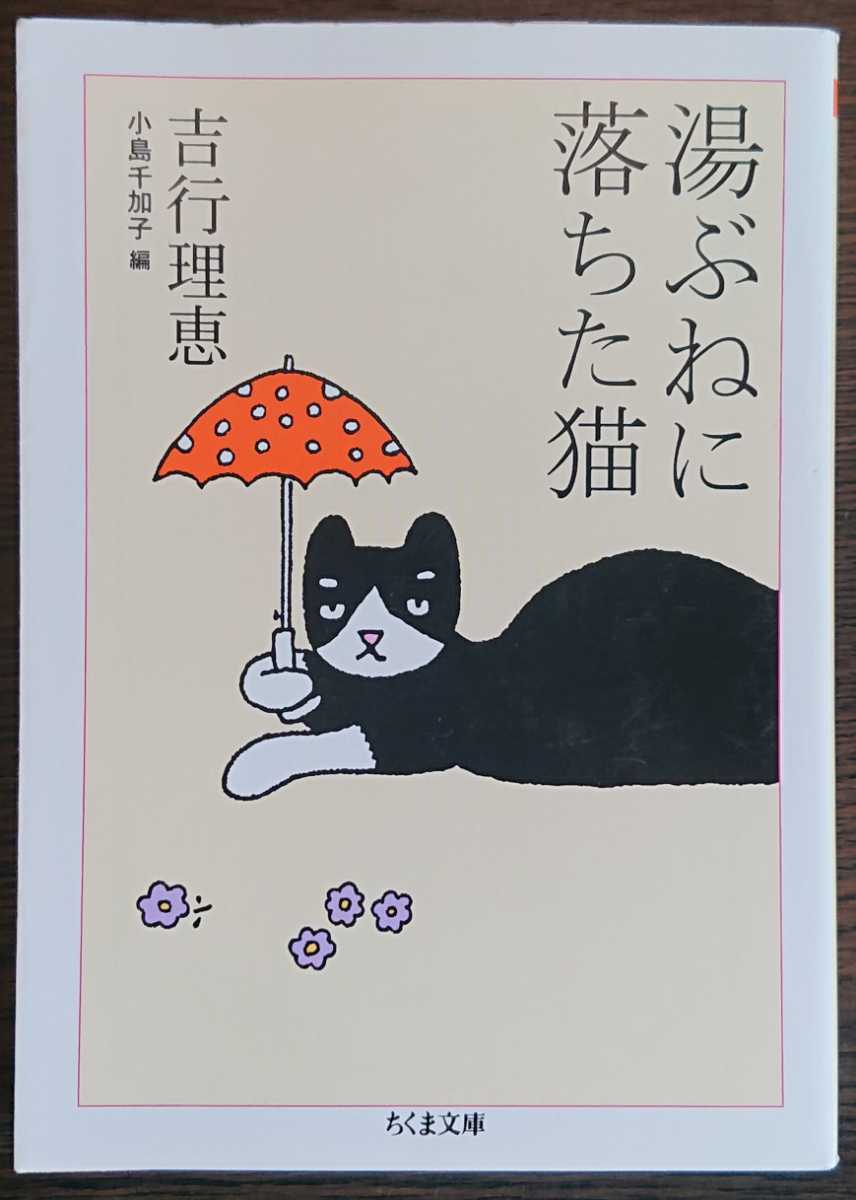 湯ぶねに
落ちた猫
吉行理恵
小島千加子 編
ちくま文庫